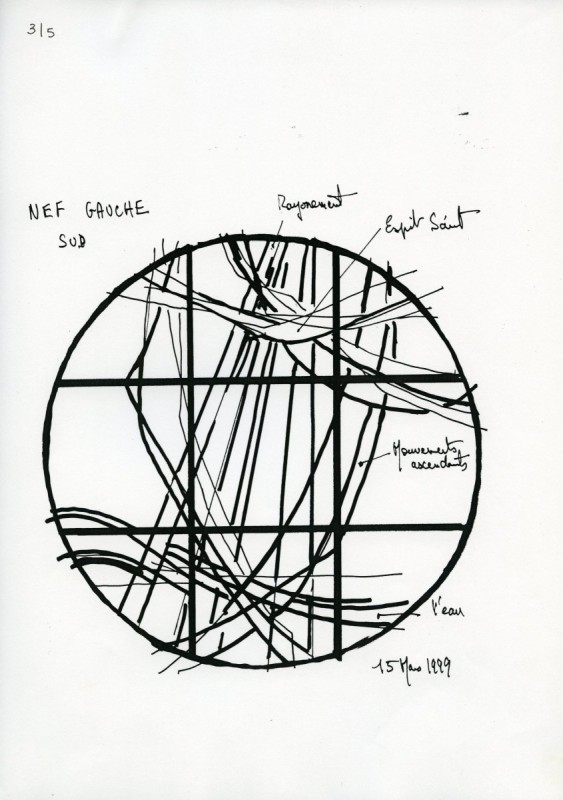 3/5
NEF GAUCHE
SUD
Rayonnement
Esprit Saint
Mouvements
ascendants
l'eau
15 Mars 1999